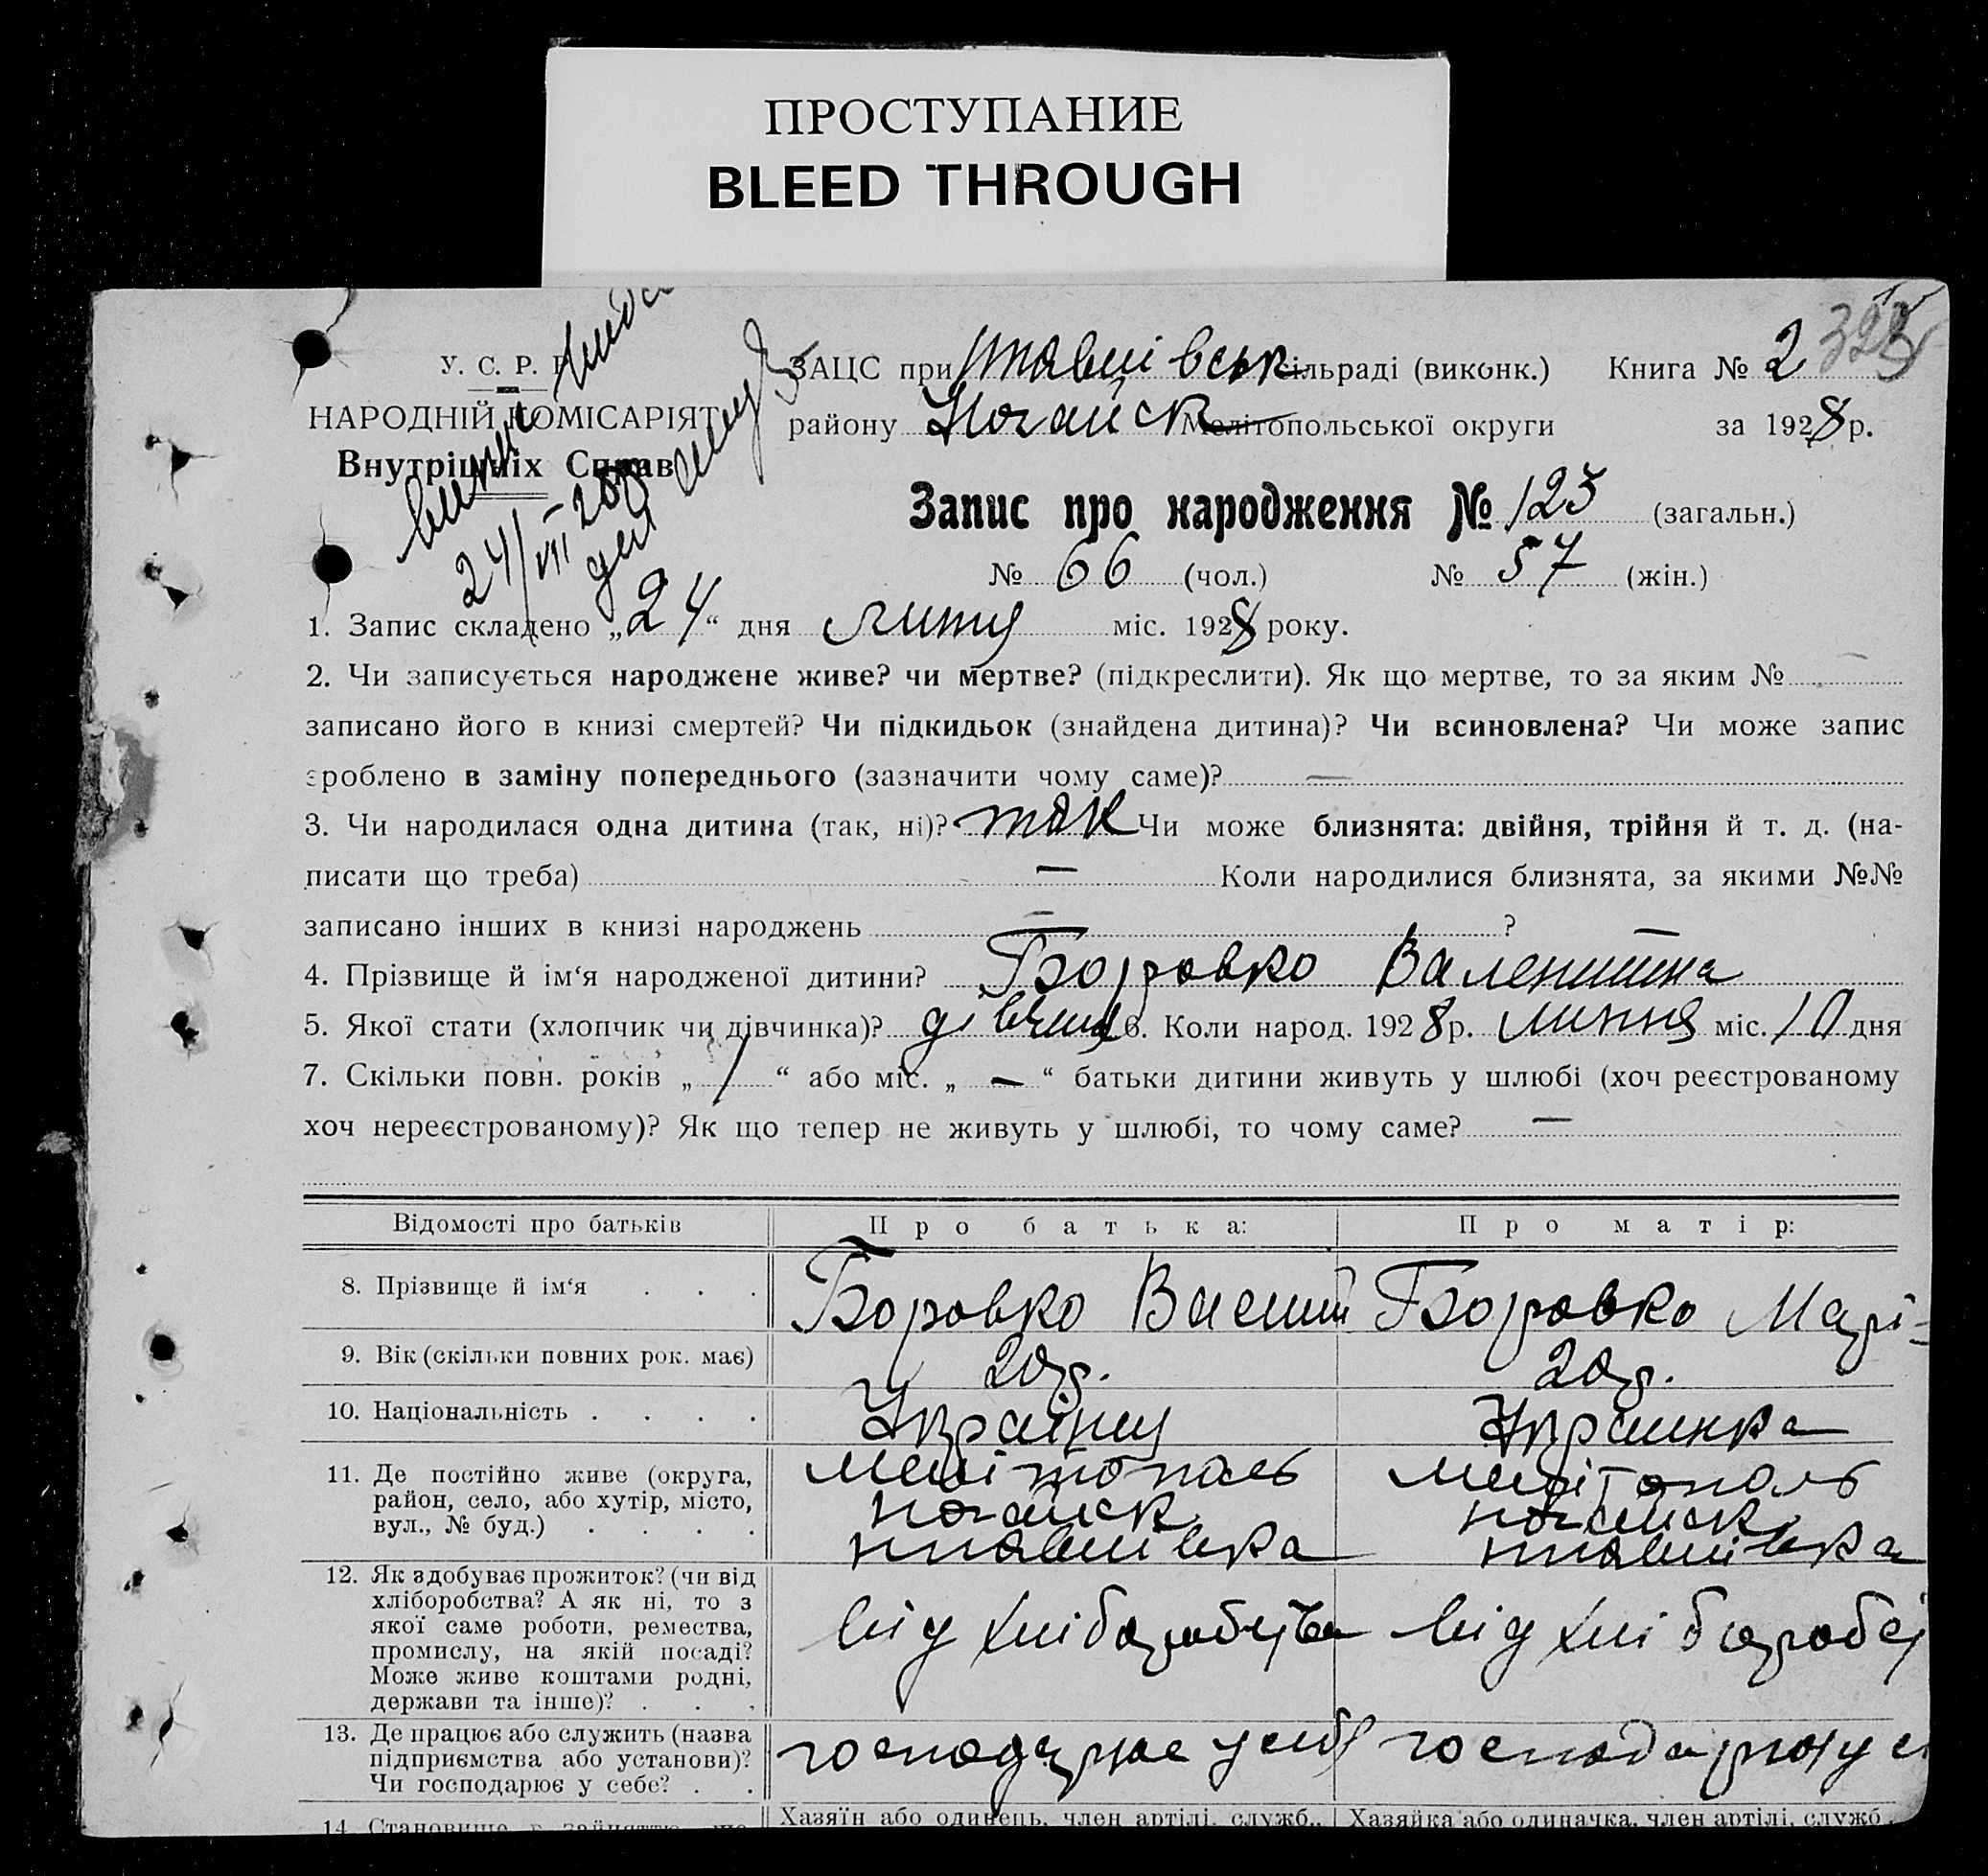 ПРОСТУПАНИЕ
BLEED THROUGH
У. С. Р. Р.
НАРОДНІЙ КОМІСАРІЯТ
Внутрішніх Справ
24/VII-28
ЗАЦС при сільраді (виконк.) Книга № 2
району Ногайськ Мелітопольської округи за 1928 р.
Запис про народження № 123 (загальн.)
№ 66 (чол.) № 57 (жін.)
1. Запис складено „24“ дня липня міс. 1928 року.
2. Чи записується народжене живе? чи мертве? (підкреслити). Як що мертве, то за яким №
записано його в книзі смертей? Чи підкидьок (знайдена дитина)? Чи всиновлена? Чи може запис
зроблено в заміну попереднього (зазначити чому саме)? —
3. Чи народилася одна дитина (так, ні)? так Чи може близнята: двійня, трійня й т. д. (на-
писати що треба) — Коли народилися близнята, за якими №№
записано інших в книзі народжень — ?
4. Прізвище й ім‘я народженої дитини? Боровко Валентина
5. Якої стати (хлопчик чи дівчинка)? дівчина 6. Коли народ. 1928 р. липня міс. 10 дня
7. Скільки повн. років „1“ або міс. „—“ батьки дитини живуть у шлюбі (хоч реєстрованому
хоч нереєстрованому)? Як що тепер не живуть у шлюбі, то чому саме? —
Відомості про батьків Про батька: Про матір:
8. Прізвище й ім‘я . . . Боровко Василь Боровко Марі-
9. Вік (скільки повних рок. має) 20 р. 20 р.
10. Національність . . . . Українец Украинка
11. Де постійно живе (округа, Мелітополь Мелітополь
район, село, або хутір, місто, Ногайск Ногайск
вул., № буд.) . . . .
12. Як здобуває прожиток? (чи від
хліборобства? А як ні, то з
якої саме роботи, ремества, від хліборобства від хлібороб
промислу, на якій посаді?
Може живе коштами родні,
держави та інше)? . . .
13. Де працює або служить (назва
підприємства або установи)? господарює у себе господарює у с
Чи господарює у себе? . .
14. Становище в занятті, що Хазяїн або одинець, член артілі, служб., Хазяйка або одиначка, член артілі, служб.